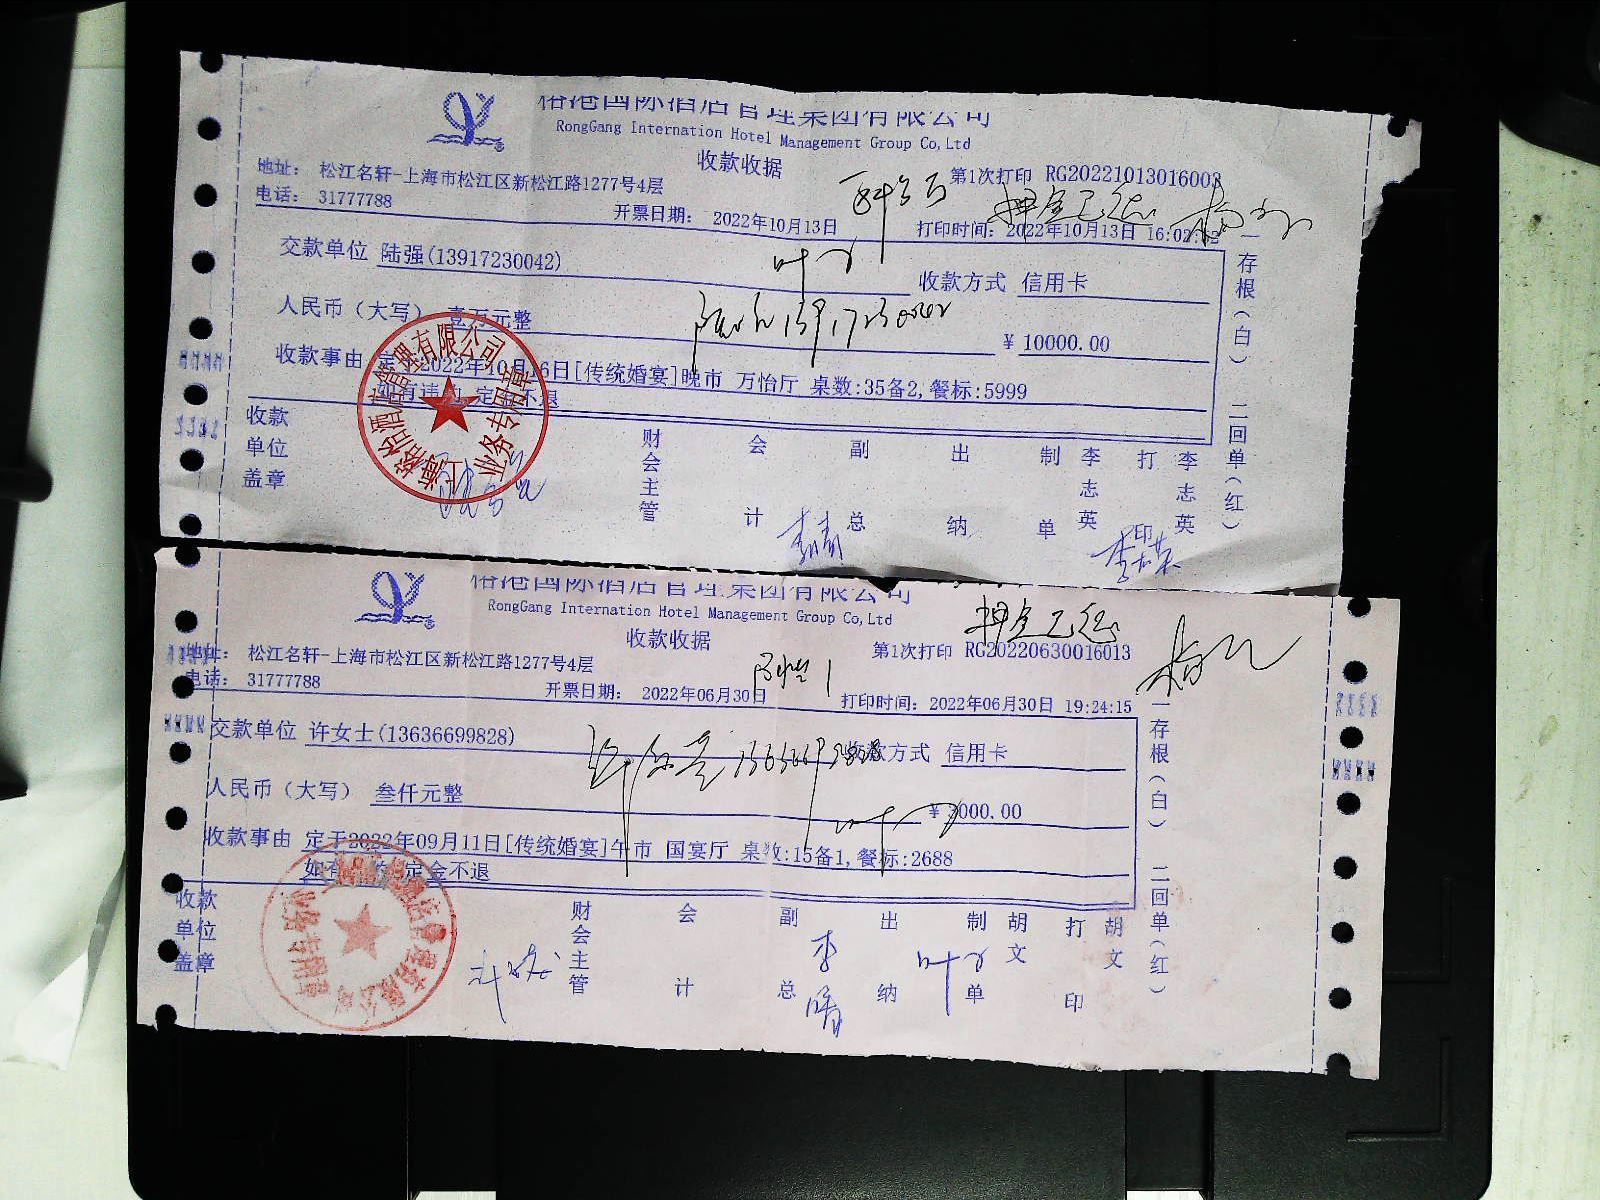 裕港国际酒店管理集团有限公司
RongGang Internation Hotel Management Group Co,Ltd
收款收据
第1次打印 RG20221013016003
地址： 松江名轩-上海市松江区新松江路1277号4层
电话： 31777788
开票日期： 2022年10月13日
打印时间：2022年10月13日 16:02:12
押金已退
交款单位 陆强(13917230042)
收款方式 信用卡
人民币（大写） 壹万元整
13917230042
¥ 10000.00
收款事由 定于2022年10月16日[传统婚宴]晚市 万怡厅 桌数:35备2,餐标:5999
如有违约 定金不退
收款单位盖章
财会主管
会计
副总
出纳
制单 李志英
打印 李志英
一存根(白) 二回单(红)
业务专用章
裕港国际酒店管理集团有限公司
RongGang Internation Hotel Management Group Co,Ltd
押金已退
收款收据
第1次打印 RG20220630016013
地址： 松江名轩-上海市松江区新松江路1277号4层
电话： 31777788
开票日期： 2022年06月30日
打印时间：2022年06月30日 19:24:15
交款单位 许女士(13636699828)
13636699828
收款方式 信用卡
人民币（大写） 叁仟元整
¥ 3000.00
收款事由 定于2022年09月11日[传统婚宴]午市 国宴厅 桌数:15备1,餐标:2688
如有违约 定金不退
收款单位盖章
财会主管
会计
副总
出纳
制单 胡文
打印 胡文
一存根(白) 二回单(红)